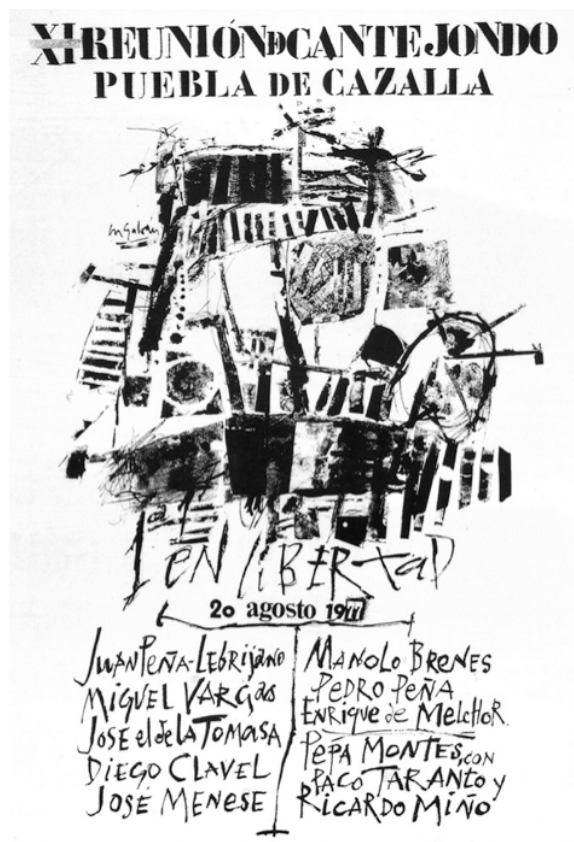 XI REUNIÓN DE CANTE JONDO
PUEBLA DE CAZALLA
1ª EN LIBERTAD
20 agosto 1977
JUAN PEÑA-LEBRIJANO
MIGUEL VARGAS
JOSE el de la TOMASA
DIEGO CLAVEL
JOSÉ MENESE
MANOLO BRENES
PEDRO PEÑA
ENRIQUE de MELCHOR
PEPA MONTES, con
PACO TARANTO y
RICARDO MIÑO